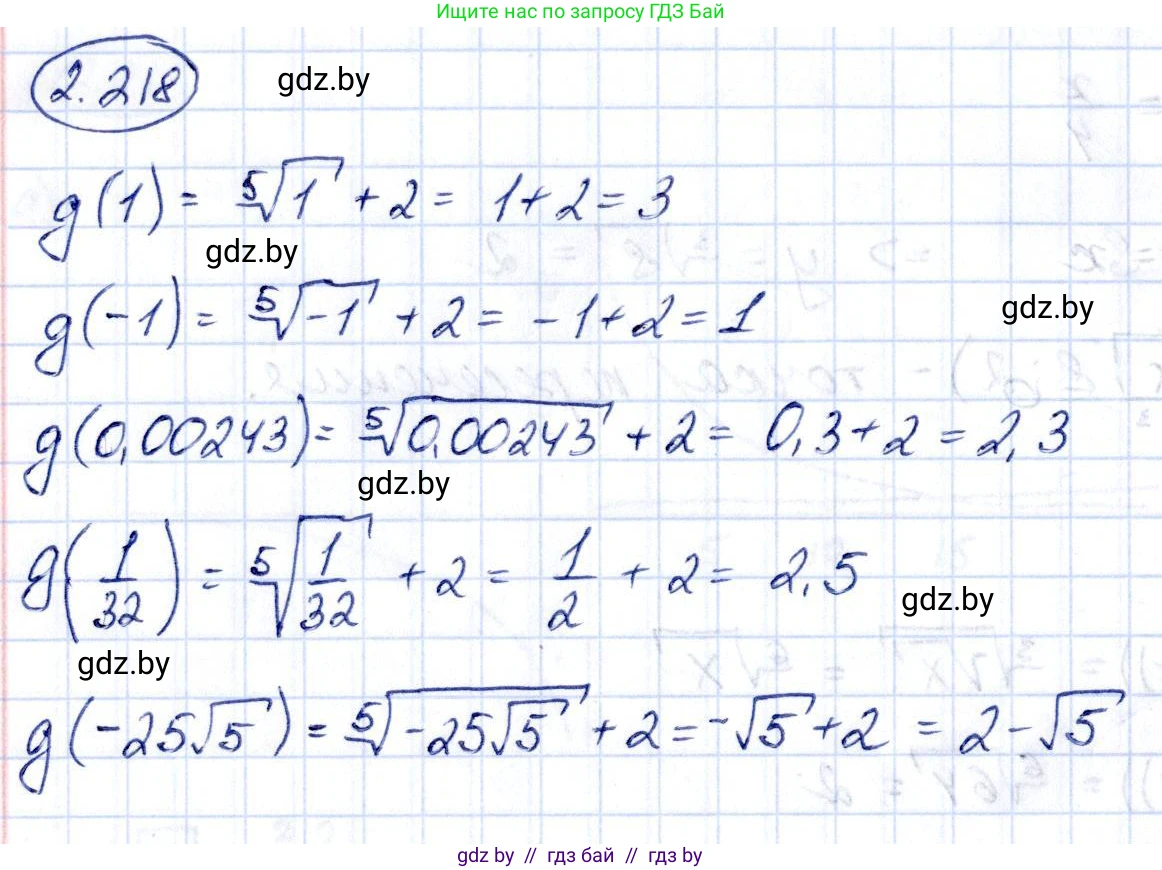 Ищите нас по запросу ГДЗ Бай
2.218
gdz.by
g(1) = ⁵√1 + 2 = 1 + 2 = 3
gdz.by
g(-1) = ⁵√-1 + 2 = -1 + 2 = 1
gdz.by
g(0,00243) = ⁵√0,00243 + 2 = 0,3 + 2 = 2,3
gdz.by
g(1/32) = ⁵√(1/32) + 2 = 1/2 + 2 = 2,5
gdz.by
gdz.by
g(-25√5) = ⁵√(-25√5) + 2 = -√5 + 2 = 2 - √5
gdz by // гдз бай // гдз by